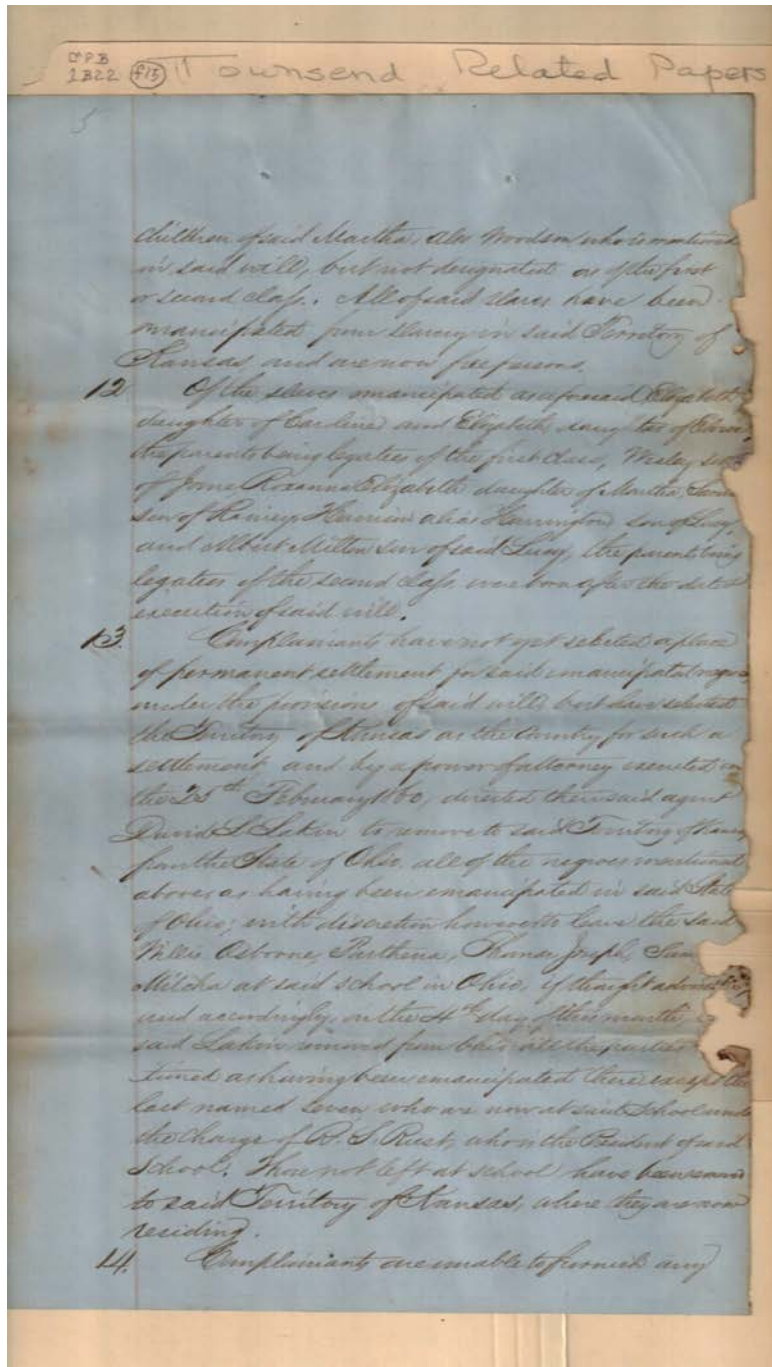 CPB
2B22 f15 Townsend Related Papers
5
children of said Martha, also Woodson, who is mentioned
in said will, but not designated as of the first
or second class. All of said slaves have been
emancipated from slavery in said Territory of
Kansas, and are now free persons.
12 Of the slaves emancipated as aforesaid, Elizabeth
daughter of Caroline and Elizabeth, daughter of
the parents being legatees of the first class, Wesley, son
of Jane, Roxanna Elizabeth daughter of Martha,
son of Rainey, Harrison alias Harrington son of Lucy,
and Albert Milton son of said Lucy, the parents being
legatees of the second class were born after the date &
execution of said will.
13. Complainants have not yet selected a place
of permanent settlement for said emancipated negroes
under the provisions of said will, but have selected
the Territory of Kansas as the Country for such a
settlement, and by a power of attorney executed on
the 25th February 1860, directed their said agent
David L Lakin to remove to said Territory of Kansas
from the State of Ohio, all of the negroes mentioned
above, as having been emancipated in said State
of Ohio; with discretion however to leave the said
Willis Osborne, Parthena, Thomas, Joseph,
Milcha at said school in Ohio, if thought
and accordingly, on the 4th day of this month
said Lakin removed from Ohio all the parties
tioned as having been emancipated there except the
last named seven who are now at said School under
the charge of R. S. Rust, who is the President of said
School. Those not left at school have been
to said Territory of Kansas, where they are now
residing.
14. Complainants are unable to furnish any